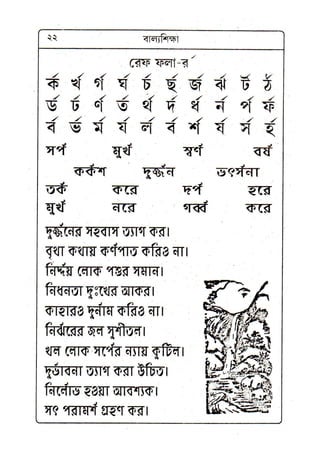 ২২ বাল্যশিক্ষা
রেফ ফলা-র্
র্ক র্খ র্গ র্ঘ র্চ র্ছ র্জ র্ঝ র্ট র্ঠ
র্ড র্ঢ র্ণ র্ত র্থ র্দ র্ধ র্ন র্প র্ফ
র্ব র্ভ র্ম র্য র্ল র্ব র্শ র্ষ র্স র্হ
সর্প মূর্খ স্বর্ণ বর্ষ
কর্কশ দুর্জ্জন ভর্ৎসনা
তর্ক করে দর্প হরে
মূর্খ নরে গর্ব্ব করে
দুর্জ্জনের সহবাস ত্যাগ কর।
বৃথা কথায় কর্ণপাত করিও না।
নির্দ্দয় লোক পশুর সমান।
নির্ধনতা দুঃখের আকর।
কাহারও দুর্নাম করিও না।
নির্ঝরের জল সুশীতল।
খল লোক সর্পের ন্যায় কুটিল।
দুর্ভাবনা ত্যাগ করা উচিত।
নির্লোভ হওয়া আবশ্যক।
সৎ পরামর্শ গ্রহণ কর।